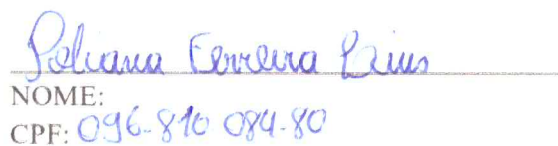 Poliana Ferreira Lins
NOME:
CPF: 096-810 084-80